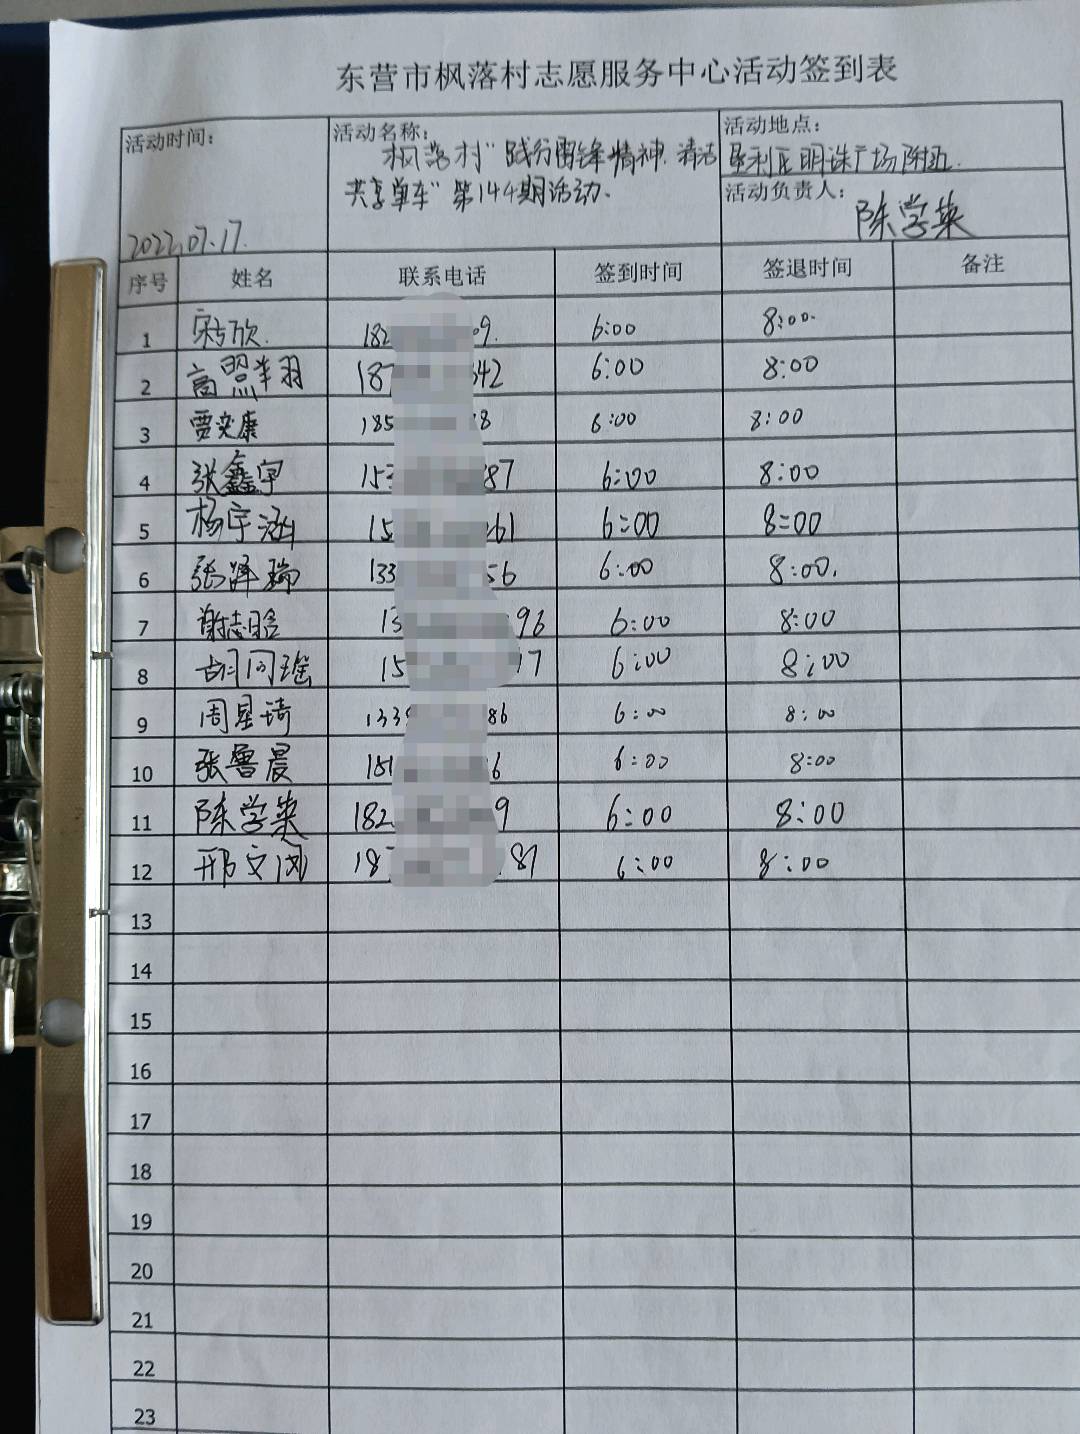 东营市枫落村志愿服务中心活动签到表
活动时间：
2022.07.17.
活动名称：
枫落村"践行雷锋精神.清洁
共享单车"第144期活动.
活动地点：
垦利区明珠广场附近.
活动负责人：
陈学英
序号 姓名 联系电话 签到时间 签退时间 备注
1 宋欣. 182 09. 6:00 8:00.
2 高盟羊羽 187 342 6:00 8:00
3 贾奕康 185 8 6:00 8:00
4 张鑫宇 153 387 6:00 8:00
5 杨宇涵 15 261 6:00 8:00
6 张泽瑞 133 56 6:00 8:00.
7 谢志晗 13 96 6:00 8:00
8 胡问瑶 15 17 6:00 8:00
9 周星琦 1339 86 6:00 8:00
10 张鲁晨 151 6 6:00 8:00
11 陈学英 182 9 6:00 8:00
12 邢文 187 87 6:00 8:00
13
14
15
16
17
18
19
20
21
22
23